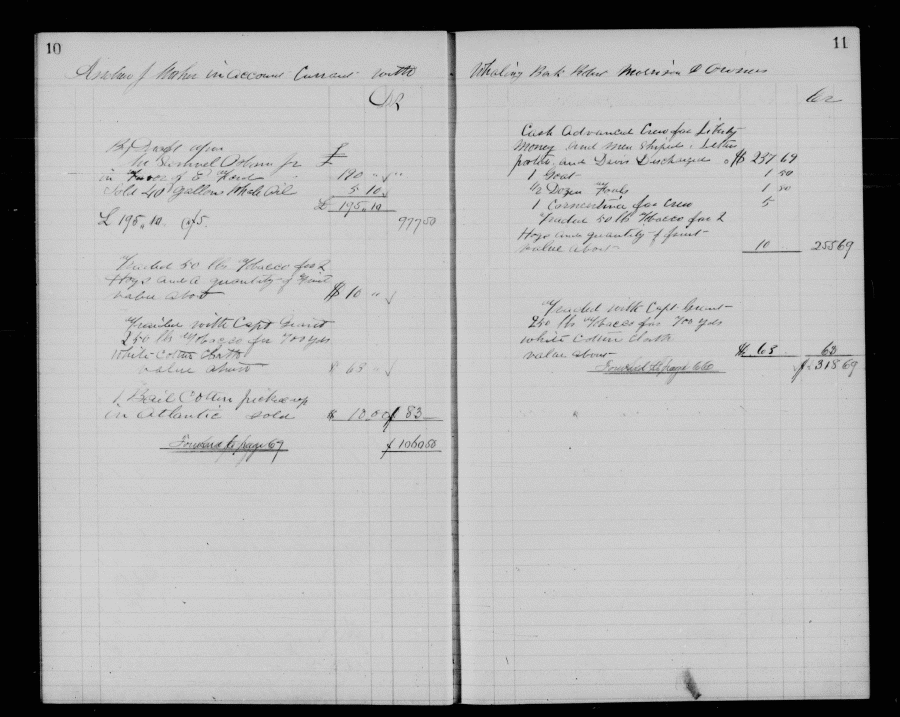 10
in account Currant with
Dr
By Draft upon
Mr Samuel Osborn Jr £
in Favor of E Ford 190 " "
Sold 40 gallons Whale Oil 5 10
£ 195 " 10
£ 195 " 10 @ 5. 977 50
Traded 50 lbs Tobacco for 2
Hogs and a quantity of Fruit
value about $ 10 "
with Capt Grant
250 lbs Tobacco for 700 yds
White Cotton Cloth
value about 63
1 Bail Cotton picked up
in Atlantic sold $ 10 00 83
Forward to page 67 1060 50
11
Whaling Bark Robert Morrison & Owners
Cr
Cash Advanced Crew for Liberty
Money and men Shiped, Letter
and Discharged $ 237 69
1 Goat 1 50
1/2 Dozen Fowls 1 50
1 for Crew 5
Traded 50 lbs Tobacco for 2
Hogs and quantity of fruit
value about 10 255 69
Traded with Capt Grant
250 lbs Tobacco for 700 yds
White Cotton Cloth
value about $ 63 63
Forward to page 318 69